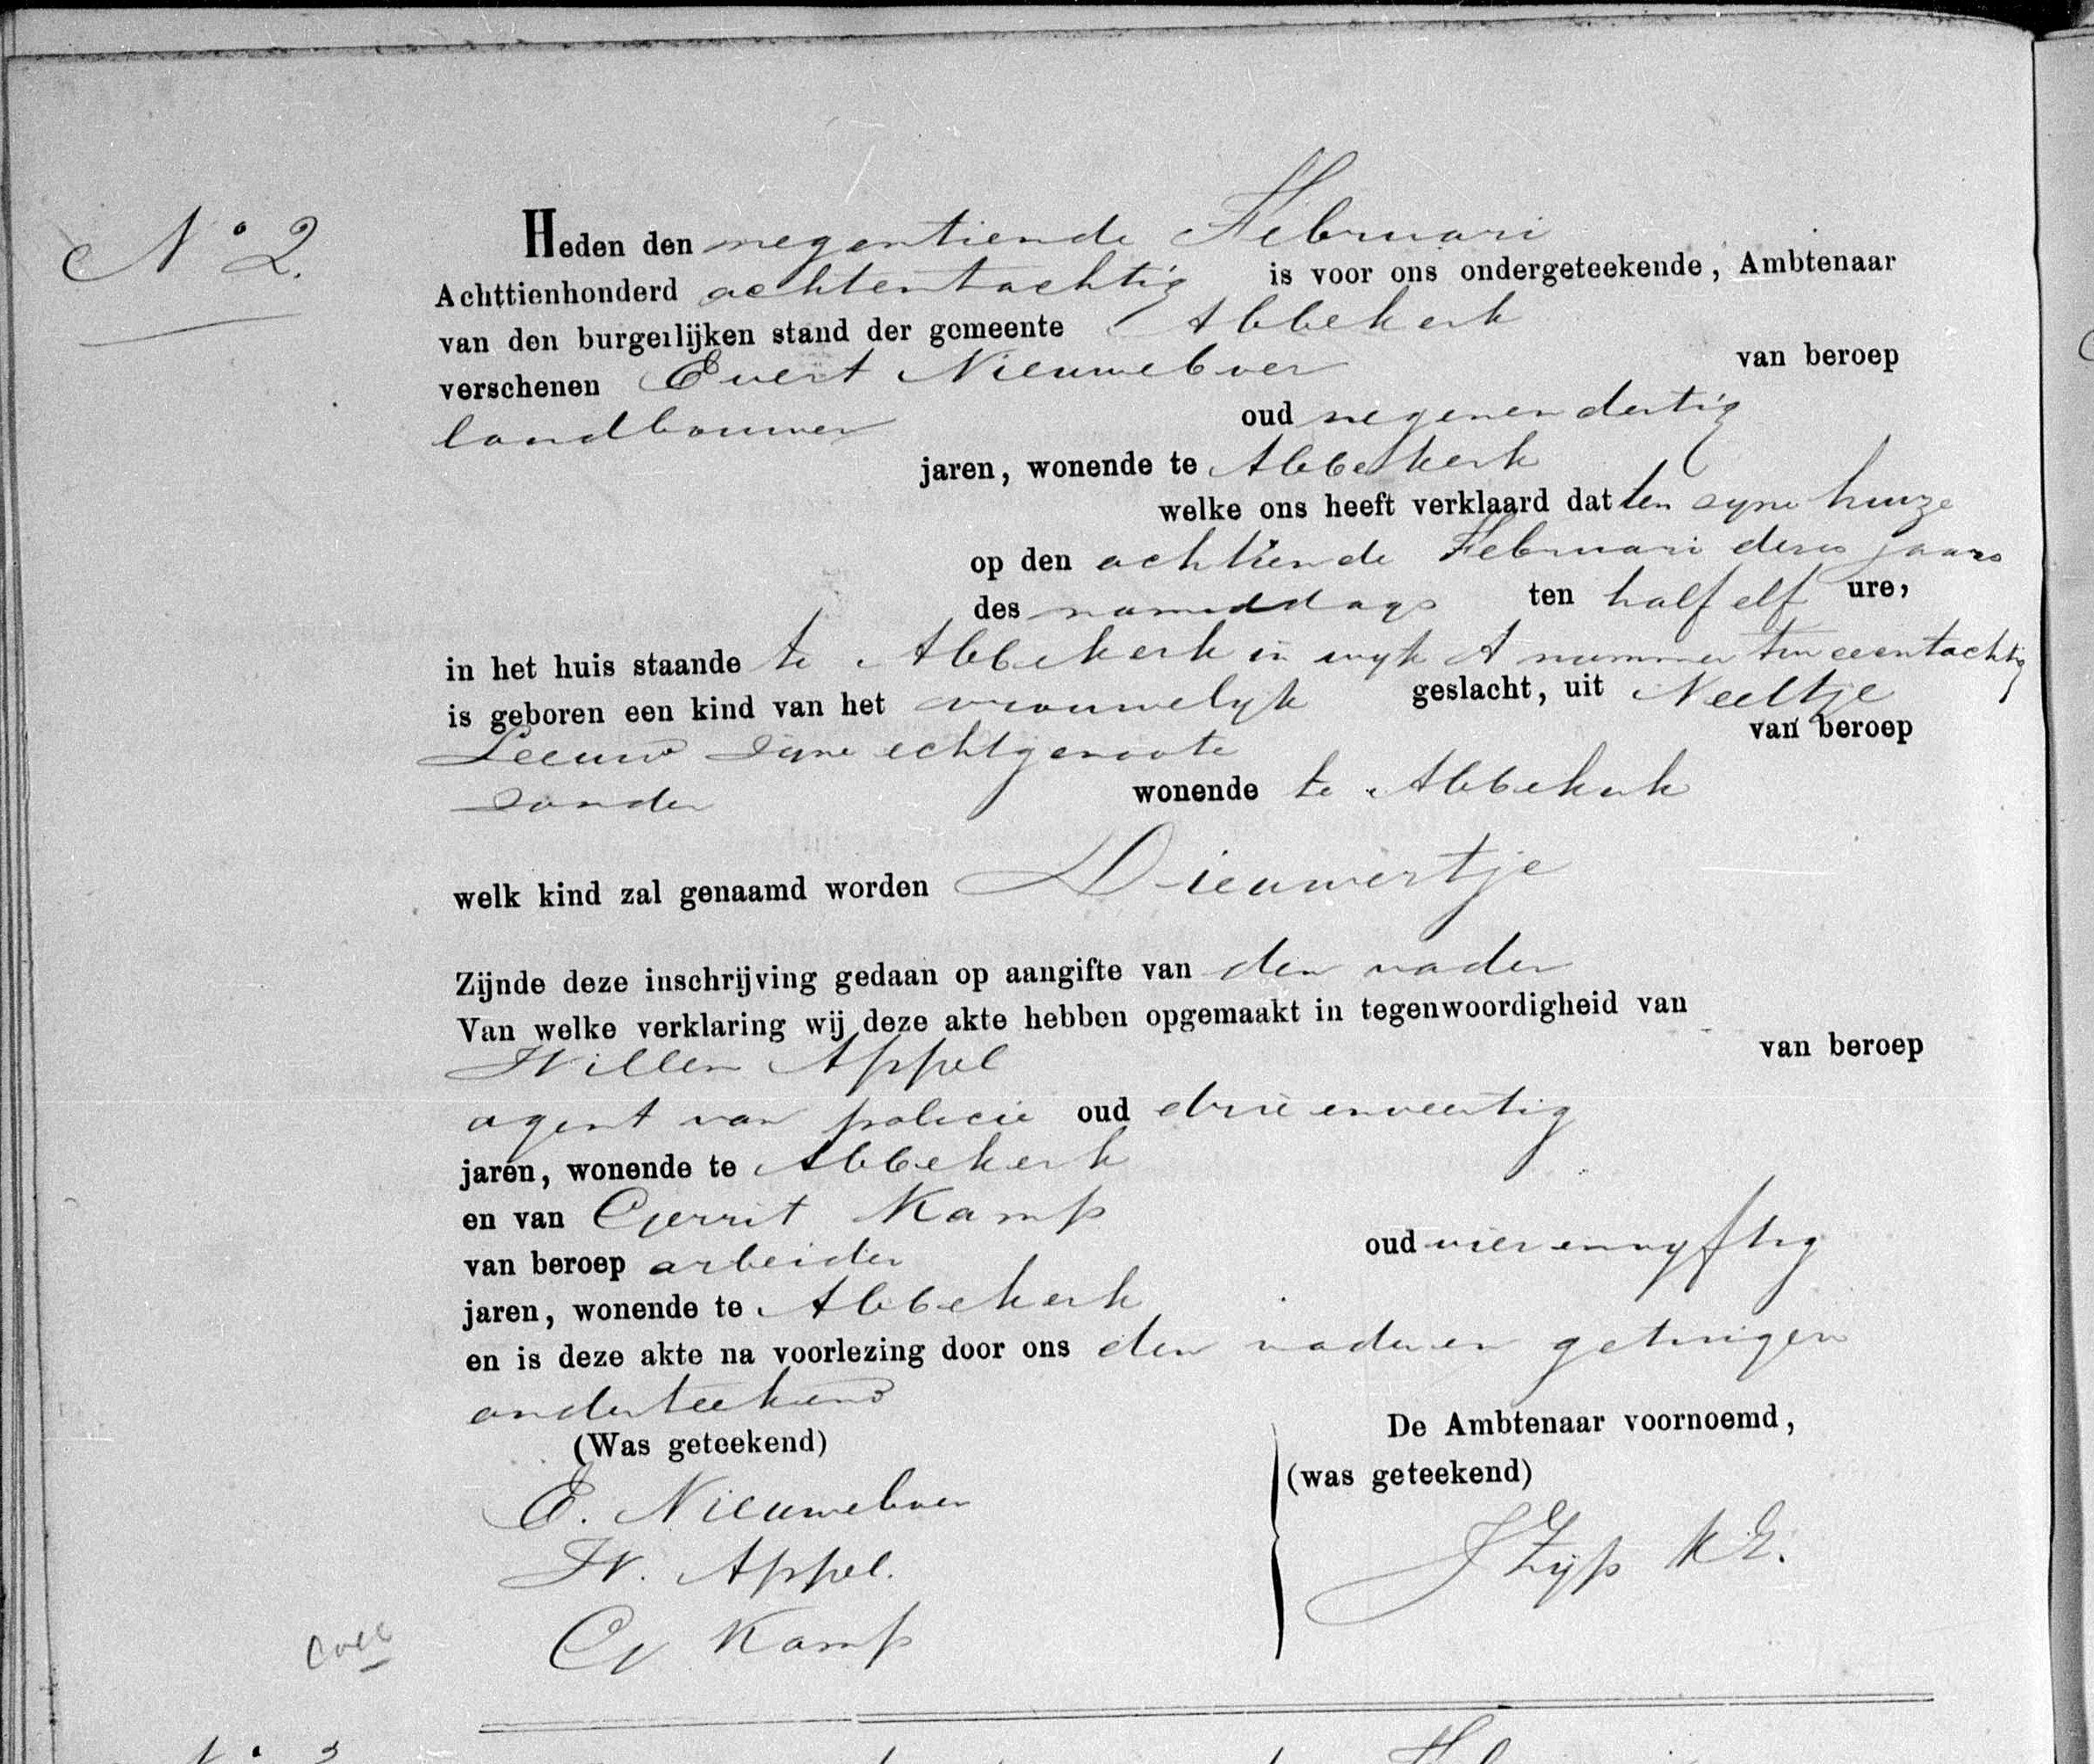 N° 2.
Heden den negentiende Februari
Achttienhonderd achtentachtig is voor ons ondergeteekende, Ambtenaar
van den burgerlijken stand der gemeente Abbekerk
verschenen Evert Nieuweboer van beroep
landbouwer oud negenendertig
jaren, wonende te Abbekerk
welke ons heeft verklaard dat ten zijne huize
op den achttiende Februari dezes jaars
des namiddags ten half elf ure,
in het huis staande te Abbekerk in wijk A nummer tweeentachtig
is geboren een kind van het vrouwelijk geslacht, uit Neeltje
Leeuw zijne echtgenoote van beroep
zonder wonende te Abbekerk
welk kind zal genaamd worden Dieuwertje
Zijnde deze inschrijving gedaan op aangifte van den vader
Van welke verklaring wij deze akte hebben opgemaakt in tegenwoordigheid van
Willem Appel van beroep
agent van policie oud drieenveertig
jaren, wonende te Abbekerk
en van Gerrit Kamp
van beroep arbeider oud vierenvijftig
jaren, wonende te Abbekerk
en is deze akte na voorlezing door ons den vader en getuigen
onderteekend
(Was geteekend) De Ambtenaar voornoemd,
(was geteekend)
E. Nieuweboer
W. Appel. J Zijp KZ.
G Kamp